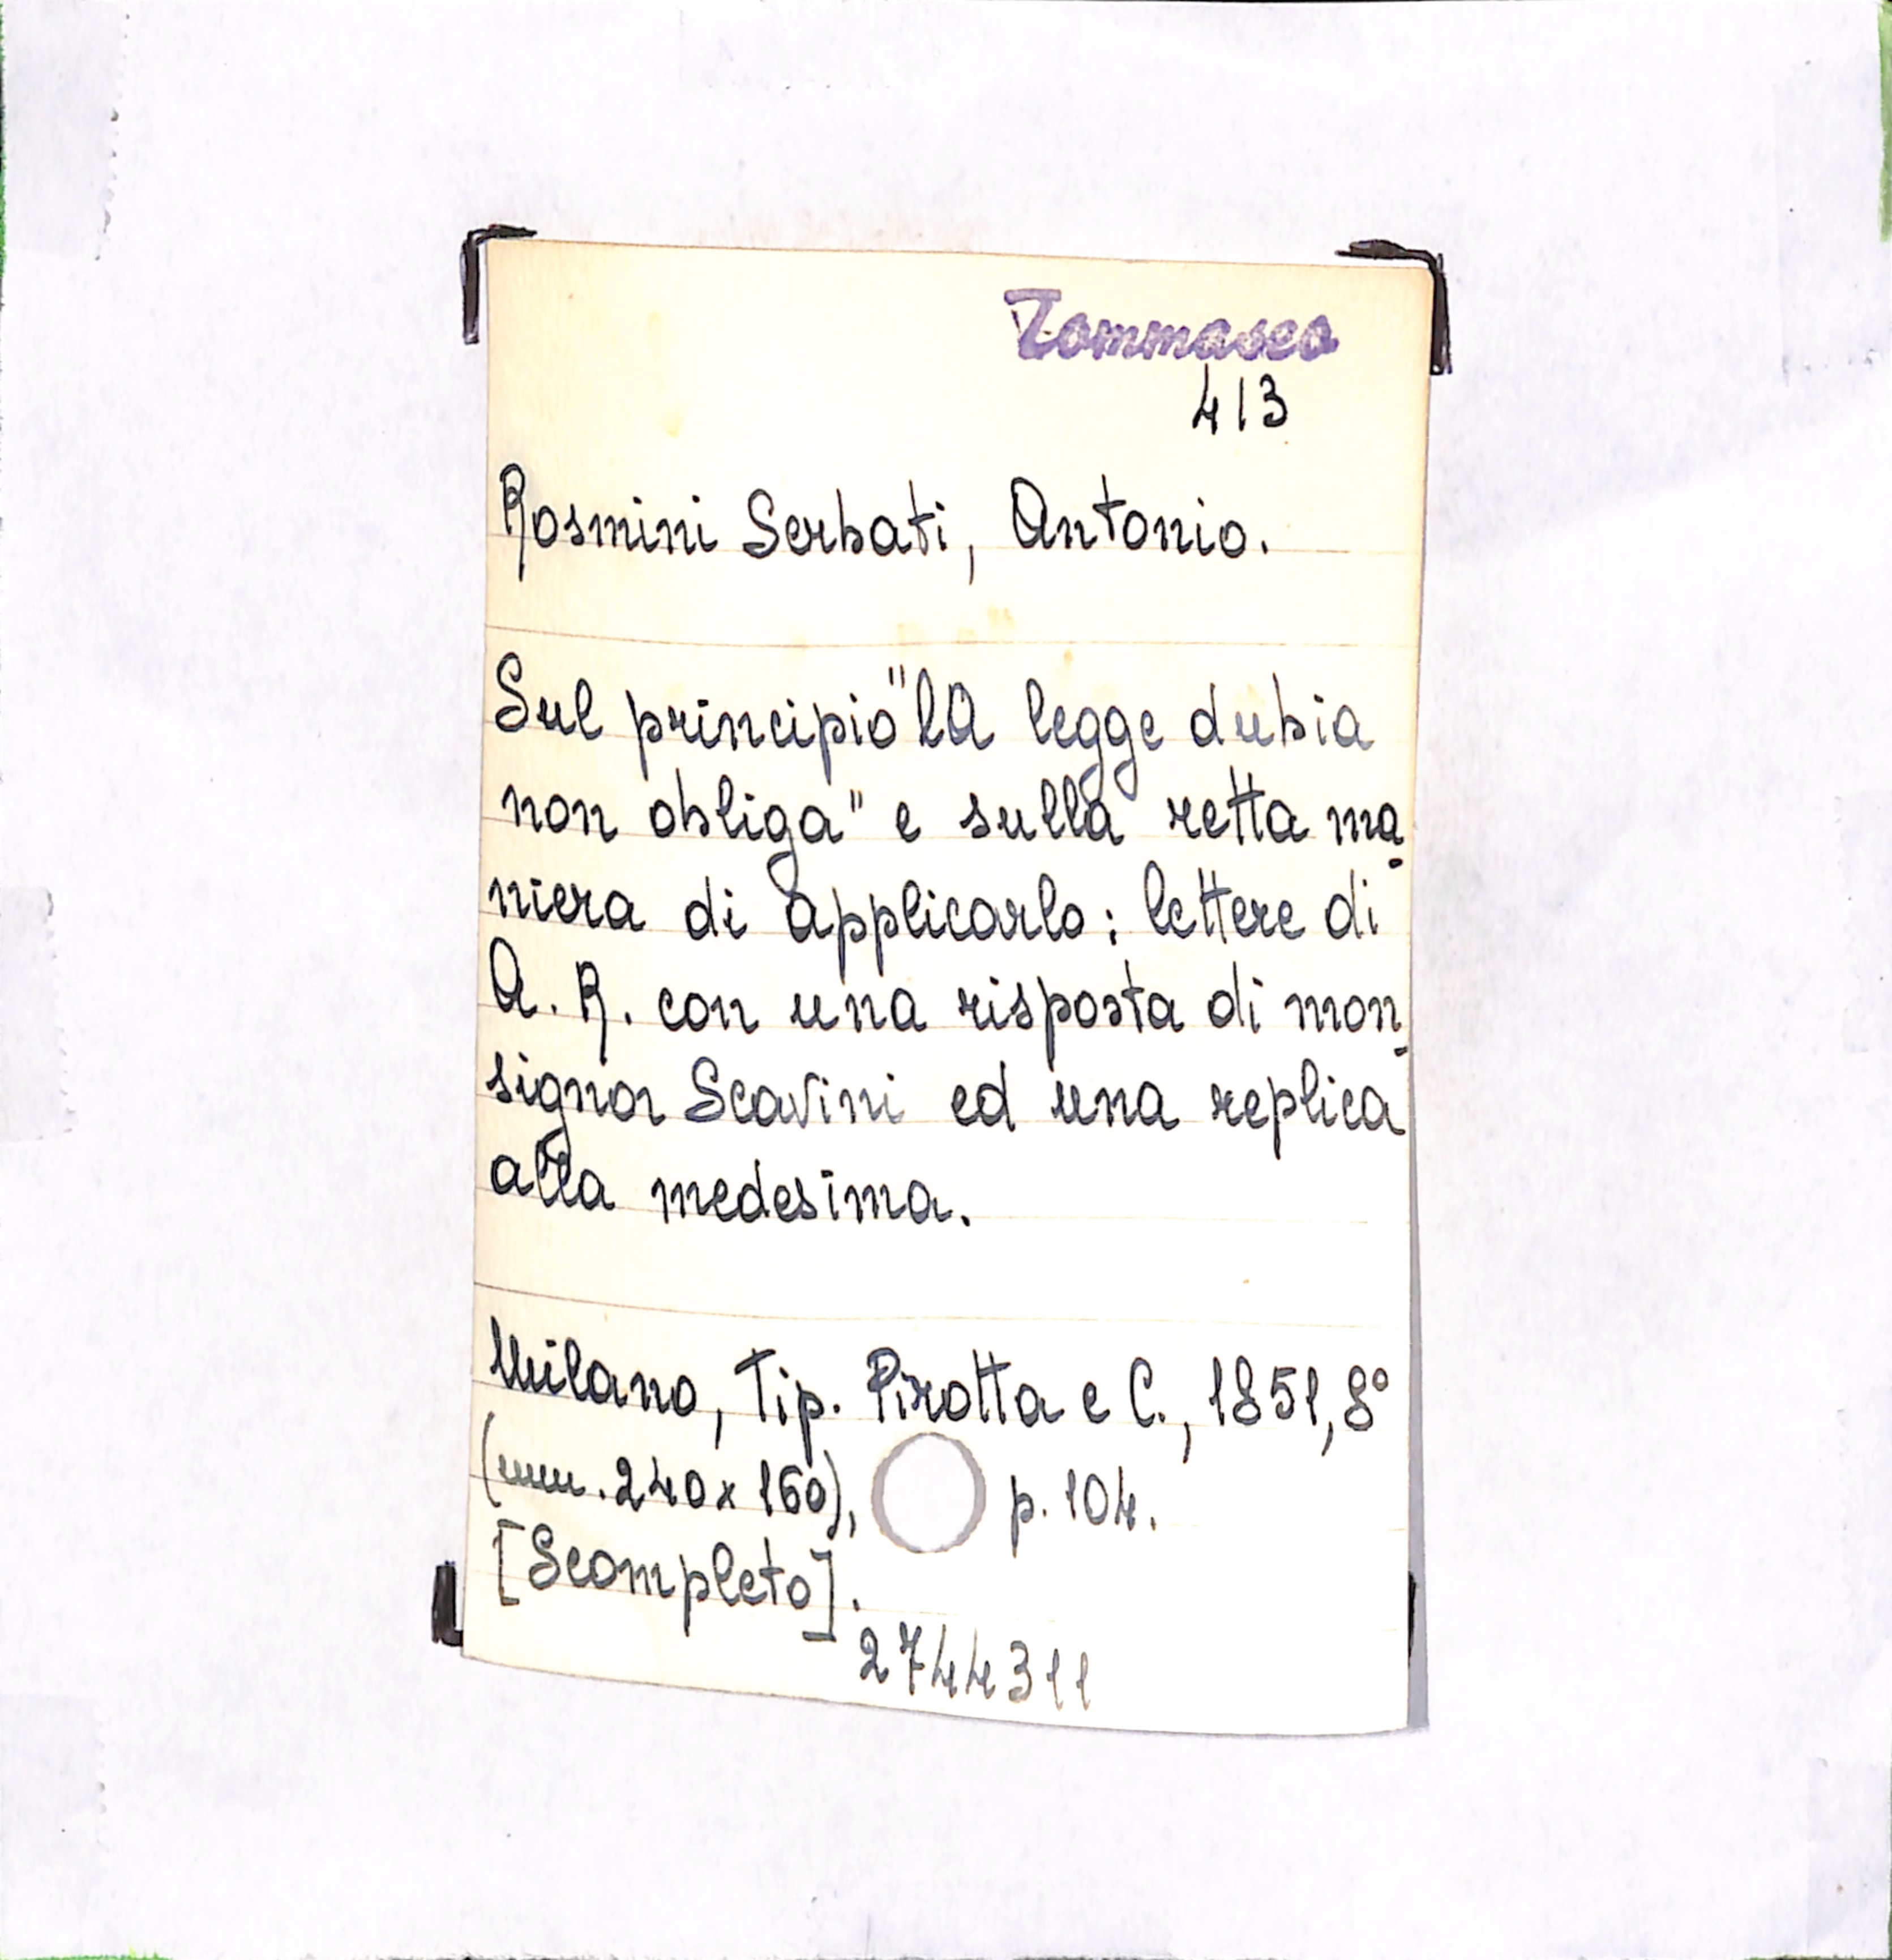 Tommaseo
413
Rosmini Serbati, Antonio.
Sul principio "la legge dubia
non obliga" e sulla retta ma-
niera di applicarlo: lettere di
A. R. con una risposta di mon-
signor Scavini ed una replica
alla medesima.
Milano, Tip. Pirotta e C., 1851, 8°
(mm. 240x160), p. 104.
[Scompleto].
2744311